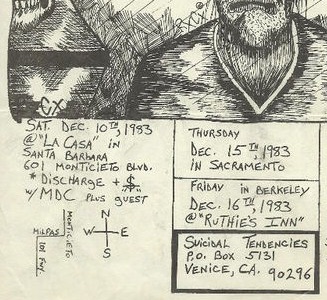 EX
SAT. DEC. 10TH, 1983
@ "LA CASA" IN
SANTA BARBARA
601 MONTICIETO BLVD.
* DISCHARGE + $
W/ MDC PLUS GUEST
MILPAS
MONTICIETO
101 FWY.
N
W E
S
THURSDAY
DEC. 15TH, 1983
IN SACRAMENTO
FRIDAY IN BERKELEY
DEC. 16TH, 1983
@ "RUTHIE'S INN"
SUICIDAL TENDENCIES
P.O. BOX 5131
VENICE, CA. 90296